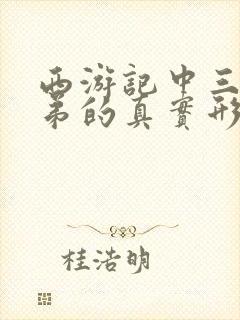 西游記中三
弟的真實形
桂浩明